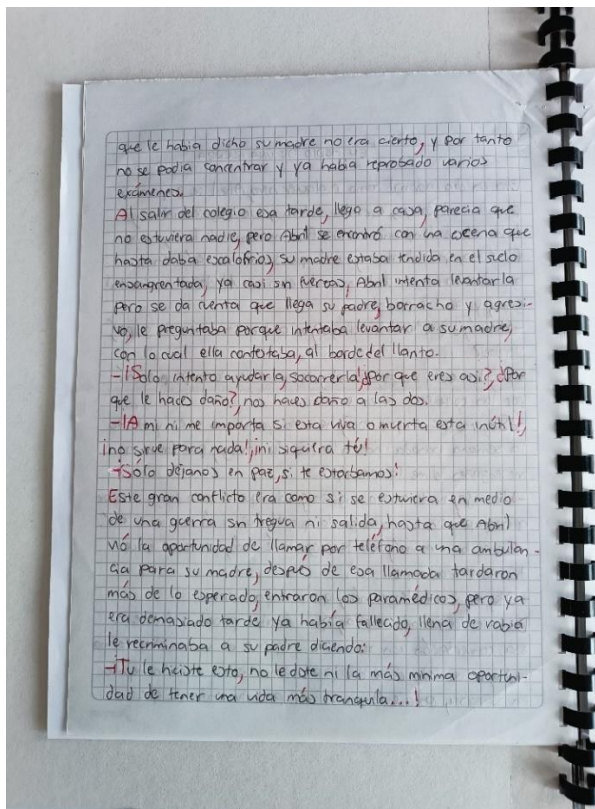 que le habia dicho su madre no era cierto, y por tanto
no se podia concentrar y ya habia reprobado varios
exámenes.
Al salir del colegio esa tarde, llego a casa, parecia que
no estuviera nadie, pero Abril se encontró con una escena que
hasta daba escalofrios, su madre estaba tendida en el suelo
ensangrentada, ya casi sin fuerzas, Abril intenta levantarla
pero se da cuenta que llega su padre, borracho y agresi-
vo, le preguntaba porque intentaba levantar a su madre,
con lo cual ella contestaba, al borde del llanto.
-¡Solo intento ayudarla, socorrerla!, ¿por que eres asi?, ¿Por
que le haces daño?, nos haces daño a las dos.
-¡A mi ni me importa si esta viva o muerta esta inútil!,
¡no sirve para nada!, ¡ni siquiera tú!
-¡Sólo déjanos en paz, si te estorbamos!
Este gran conflicto era como si se estuviera en medio
de una guerra sin tregua ni salida, hasta que Abril
vió la oportunidad de llamar por teléfono a una ambulan-
cia para su madre, despús de esa llamada tardaron
más de lo esperado, entraron los paramédicos, pero ya
era demasiado tarde ya había fallecido, llena de rabia
le recriminaba a su padre diciendo:
-¡Tu le hiciste esto, no le diste ni la más minima oportuni-
dad de tener una vida más tranquila...!